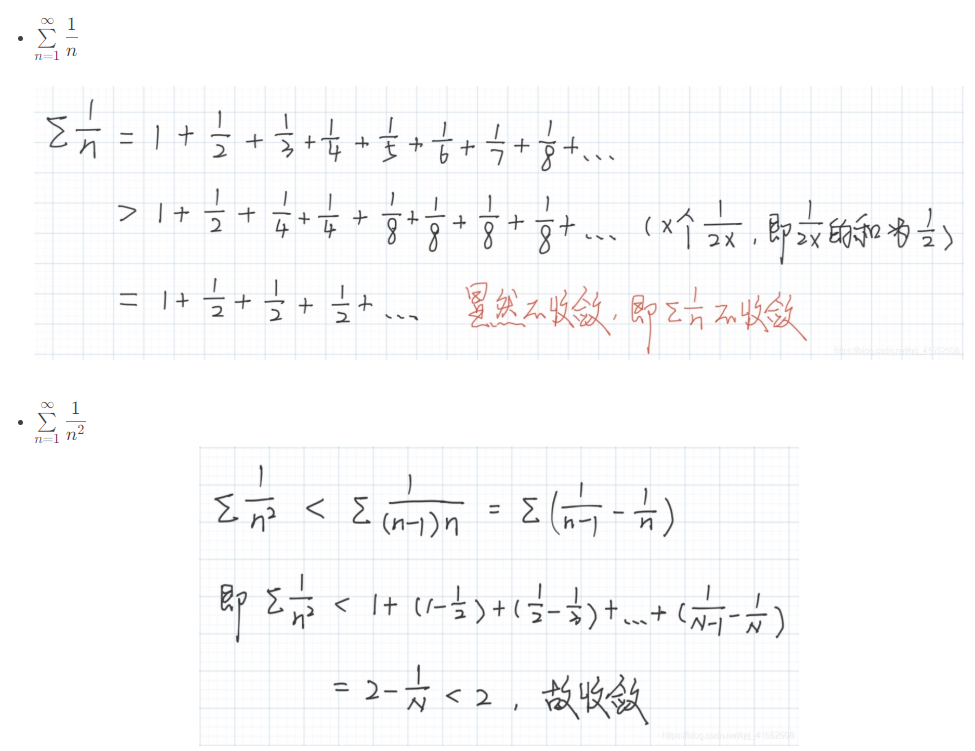 • \sum_{n=1}^{\infty} \frac{1}{n}
Σ 1/n = 1 + 1/2 + 1/3 + 1/4 + 1/5 + 1/6 + 1/7 + 1/8 + ...
> 1 + 1/2 + 1/4 + 1/4 + 1/8 + 1/8 + 1/8 + 1/8 + ... (x个 1/2x, 即 1/2x 的和为 1/2)
= 1 + 1/2 + 1/2 + 1/2 + ... 显然不收敛, 即 Σ 1/n 不收敛
• \sum_{n=1}^{\infty} \frac{1}{n^2}
Σ 1/n² < Σ 1/((n-1)n) = Σ (1/(n-1) - 1/n)
即 Σ 1/n² < 1 + (1 - 1/2) + (1/2 - 1/3) + ... + (1/(N-1) - 1/N)
= 2 - 1/N < 2, 故收敛